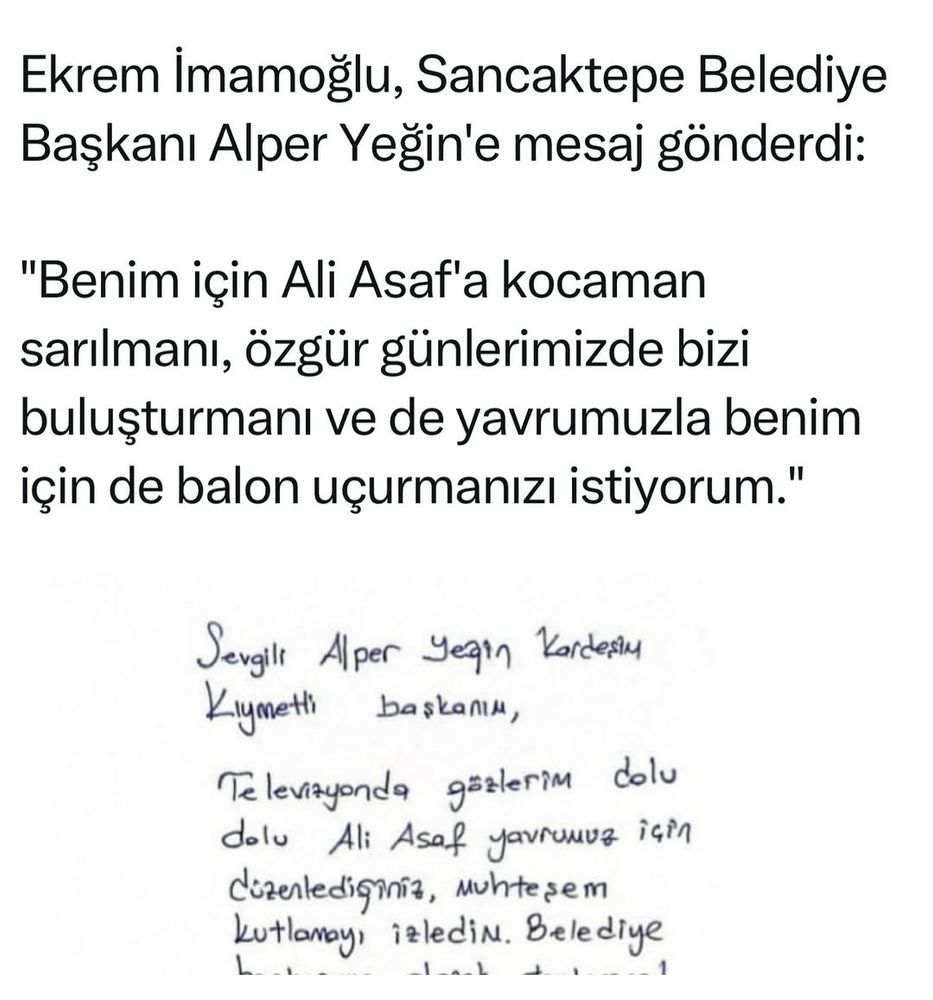 Ekrem İmamoğlu, Sancaktepe Belediye
Başkanı Alper Yeğin'e mesaj gönderdi:
"Benim için Ali Asaf'a kocaman
sarılmanı, özgür günlerimizde bizi
buluşturmanı ve de yavrumuzla benim
için de balon uçurmanızı istiyorum."
Sevgili Alper Yeğin Kardeşim
Kıymetli başkanım,
Televizyonda gözlerim dolu
dolu Ali Asaf yavrumuz için
düzenlediğiniz, muhteşem
kutlamayı izledim. Belediye